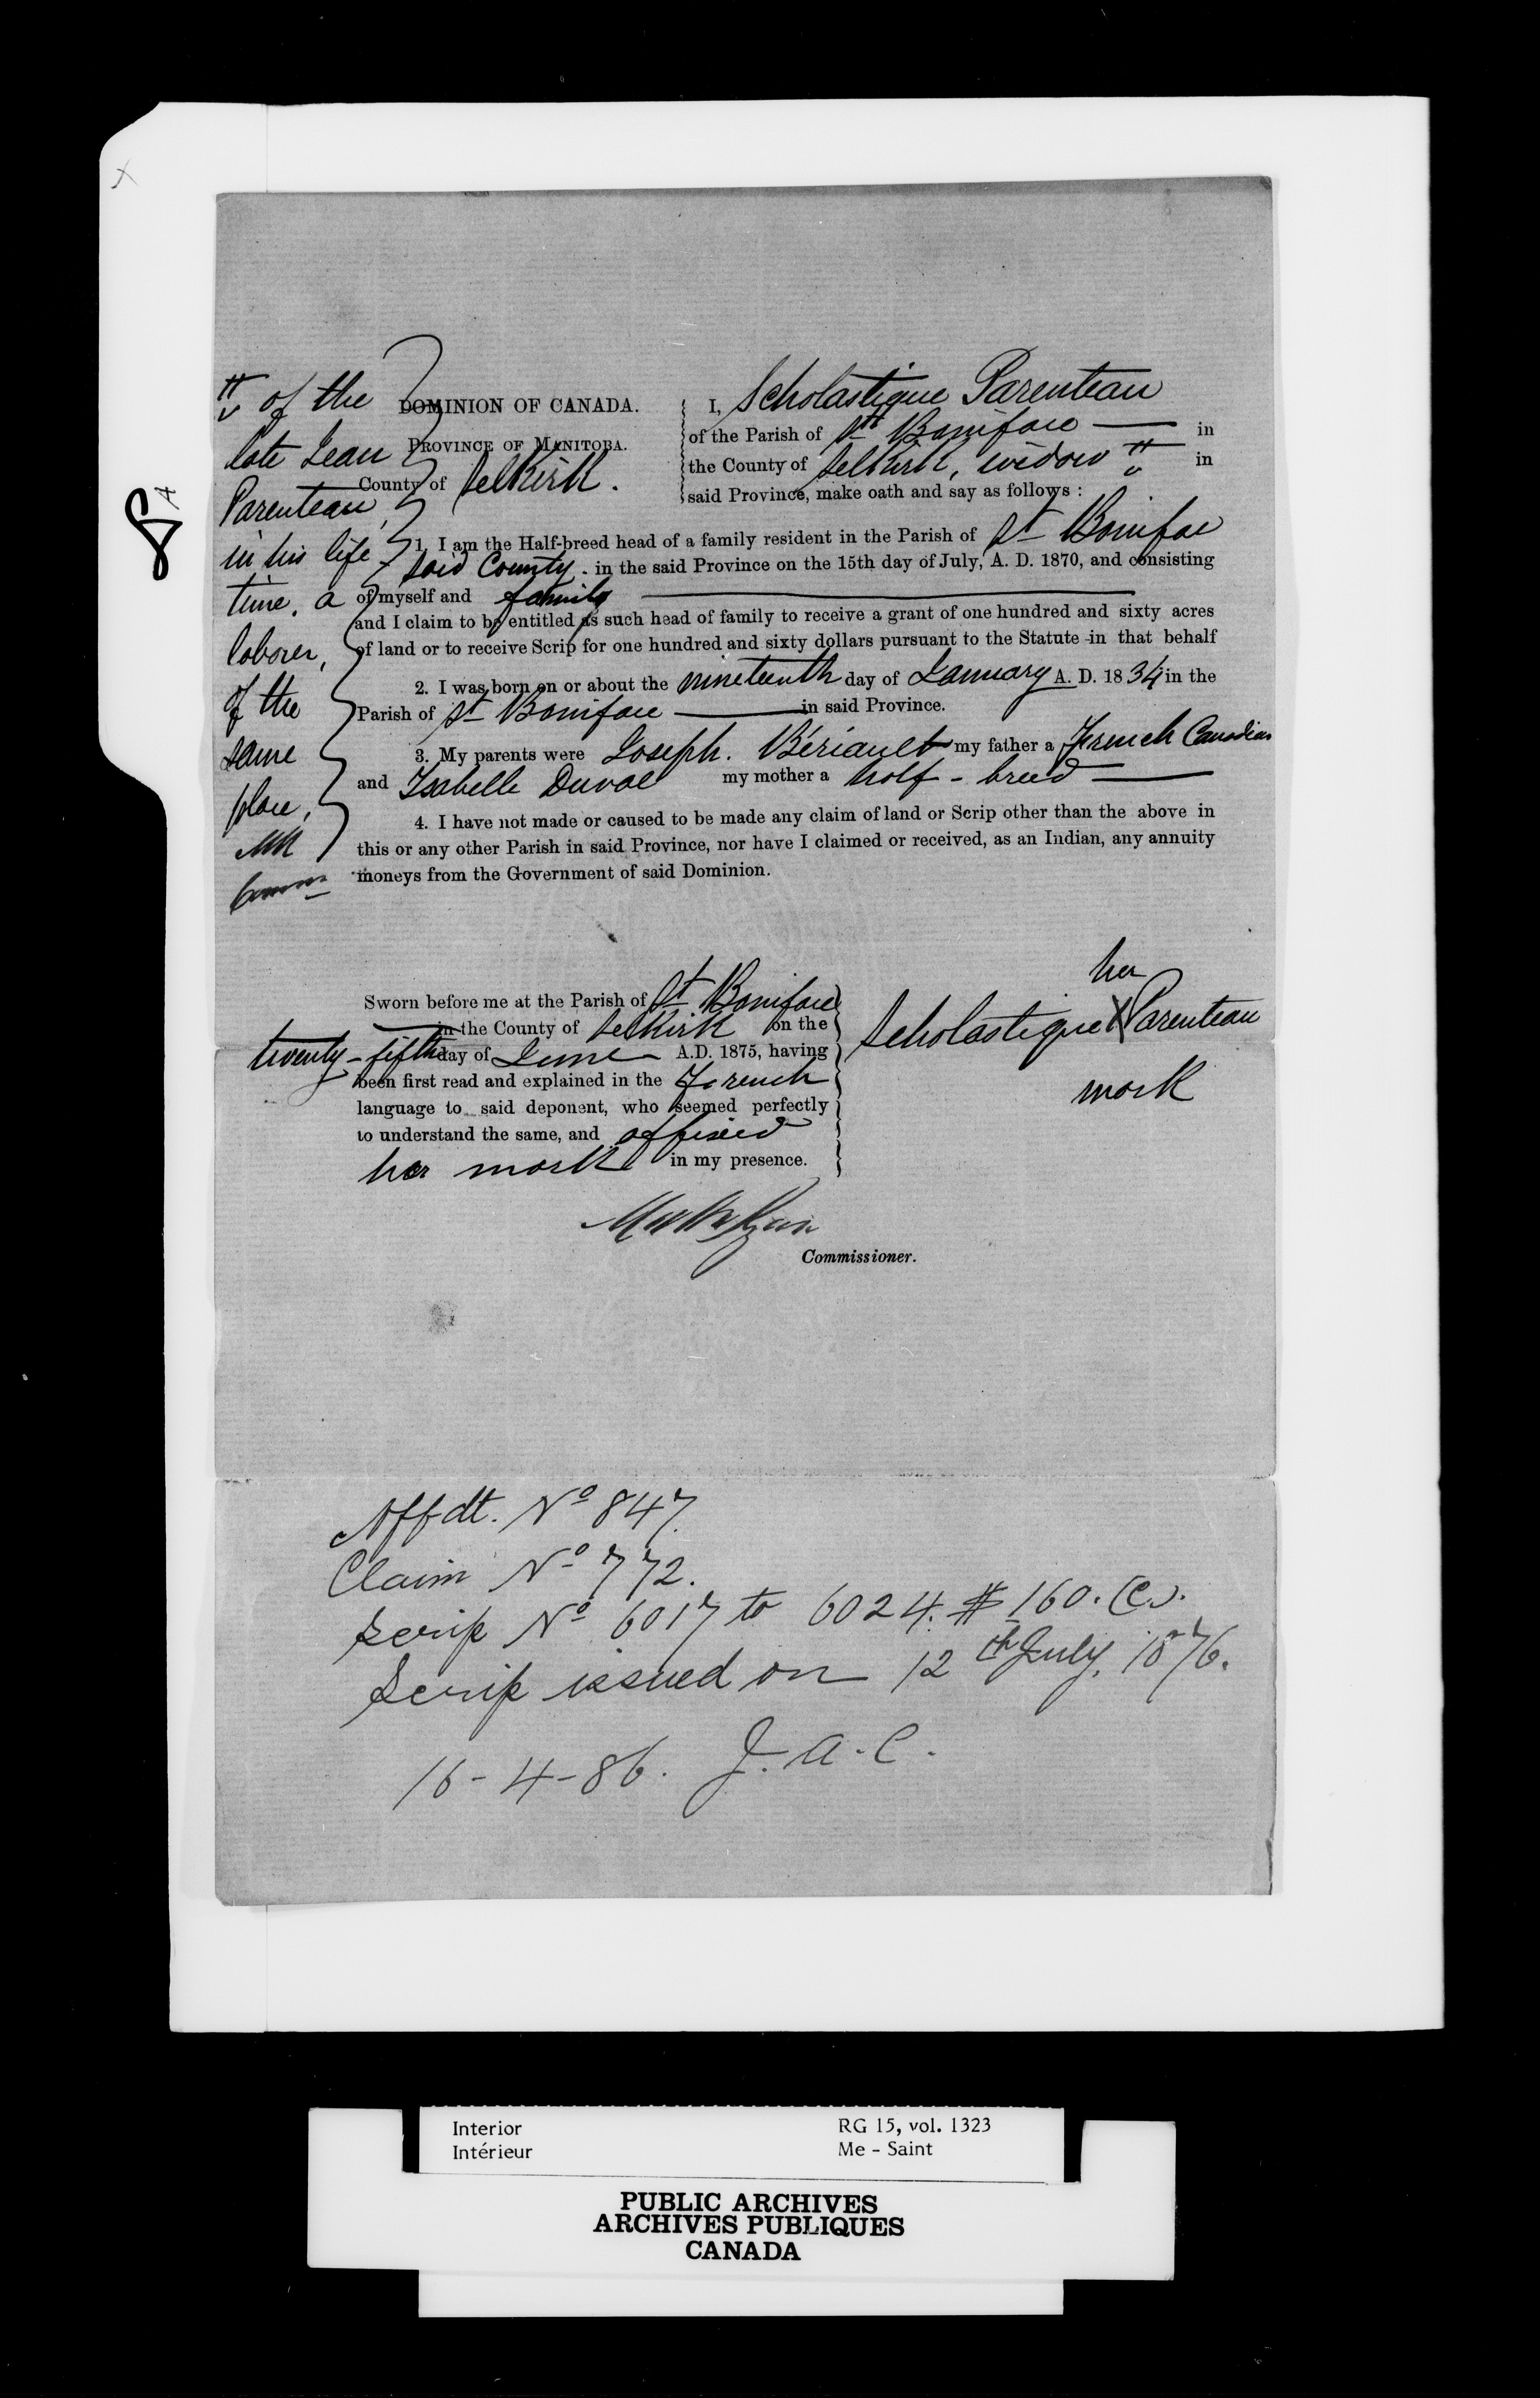 DOMINION OF CANADA.
PROVINCE OF MANITOBA.
County of Selkirk.
I, Scholastique Parenteau
of the Parish of St Boniface in
the County of Selkirk, widow # in
said Province, make oath and say as follows :
# of the
late Jean
Parenteau,
in his life
time, a
laborer,
of the
same
place,
1. I am the Half-breed head of a family resident in the Parish of St Boniface
said County. in the said Province on the 15th day of July, A. D. 1870, and consisting
of myself and family
and I claim to be entitled as such head of family to receive a grant of one hundred and sixty acres
of land or to receive Scrip for one hundred and sixty dollars pursuant to the Statute in that behalf
2. I was born on or about the nineteenth day of January A. D. 1834 in the
Parish of St Boniface in said Province.
3. My parents were Joseph. Bériault my father a French Canadian
and Isabelle Duval my mother a half-breed
4. I have not made or caused to be made any claim of land or Scrip other than the above in
this or any other Parish in said Province, nor have I claimed or received, as an Indian, any annuity
moneys from the Government of said Dominion.
Sworn before me at the Parish of St Boniface
in the County of Selkirk on the
twenty-fifth day of June A.D. 1875, having
been first read and explained in the French
language to said deponent, who seemed perfectly
to understand the same, and affixed
her mark in my presence.
her
Scholastique X Parenteau
mark
Commissioner.
Affdt. No 847.
Claim No 772.
Scrip No 6017 to 6024. $160. (C).
Scrip issued on 12th July, 1876.
16-4-86. J. A. C.
Interior RG 15, vol. 1323
Intérieur Me - Saint
PUBLIC ARCHIVES
ARCHIVES PUBLIQUES
CANADA